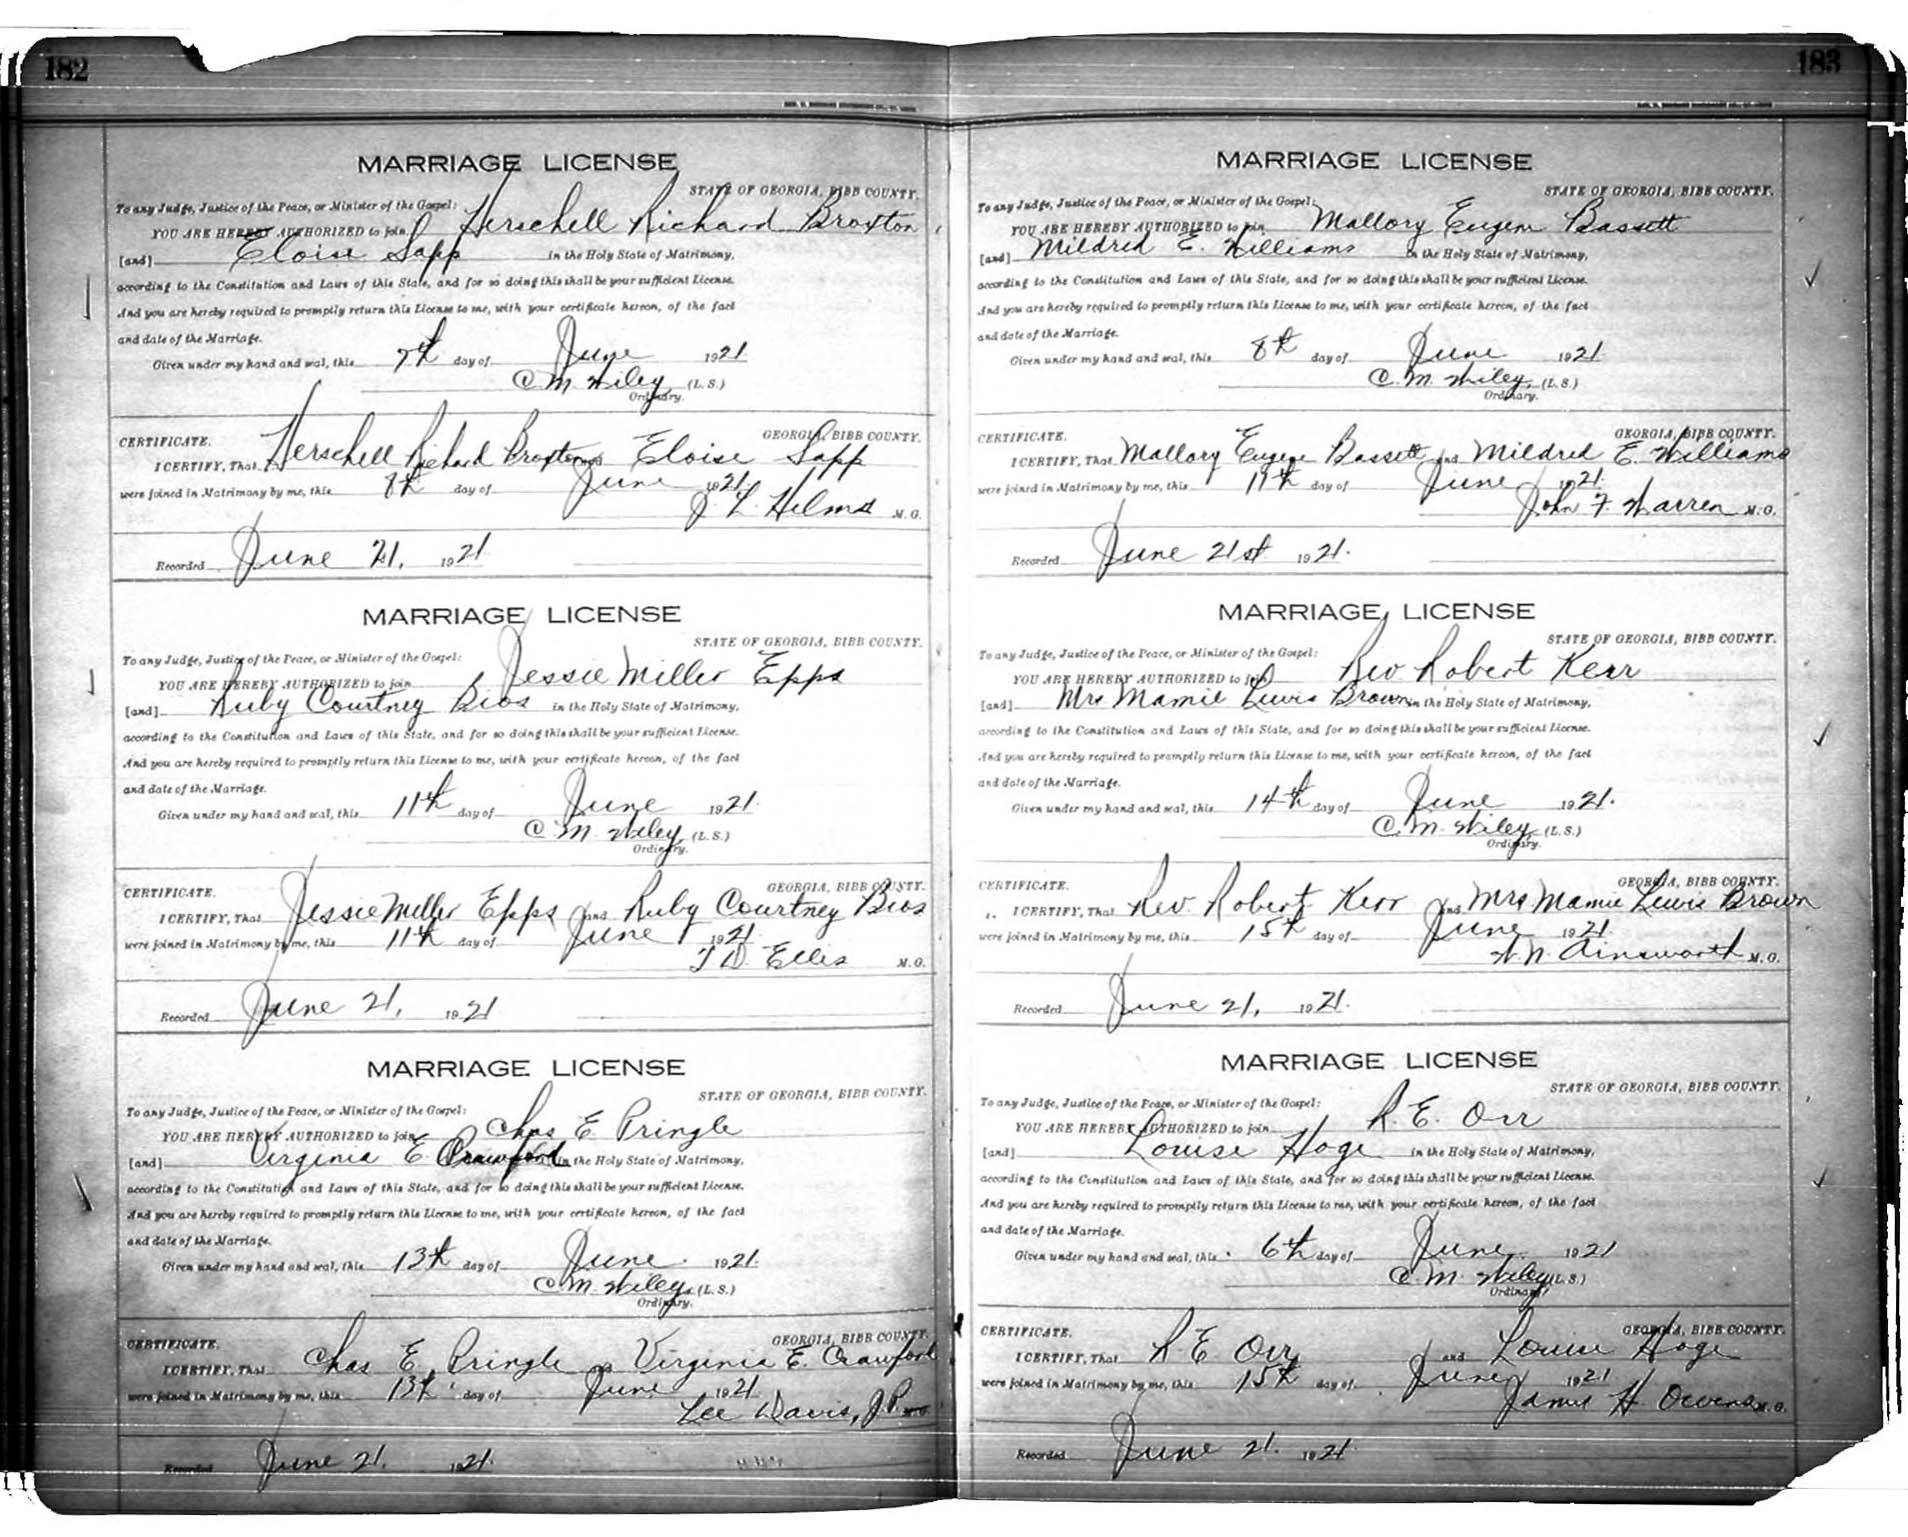 182
MARRIAGE LICENSE
STATE OF GEORGIA, BIBB COUNTY.
To any Judge, Justice of the Peace, or Minister of the Gospel:
YOU ARE HEREBY AUTHORIZED to join Herschell Richard Broxton
[and] Eloise Sapp in the Holy State of Matrimony,
according to the Constitution and Laws of this State, and for so doing this shall be your sufficient License.
And you are hereby required to promptly return this License to me, with your certificate hereon, of the fact
and date of the Marriage.
Given under my hand and seal, this 7th day of June 1921
C. M. Wiley (L. S.)
Ordinary.
CERTIFICATE. GEORGIA, BIBB COUNTY.
I CERTIFY, That Herschell Richard Broxton and Eloise Sapp
were joined in Matrimony by me, this 8th day of June 1921.
J. L. Helms M. G.
Recorded June 21, 1921
MARRIAGE LICENSE
STATE OF GEORGIA, BIBB COUNTY.
To any Judge, Justice of the Peace, or Minister of the Gospel:
YOU ARE HEREBY AUTHORIZED to join Jessie Miller Epps
[and] Ruby Courtney Bios in the Holy State of Matrimony,
according to the Constitution and Laws of this State, and for so doing this shall be your sufficient License.
And you are hereby required to promptly return this License to me, with your certificate hereon, of the fact
and date of the Marriage.
Given under my hand and seal, this 11th day of June 1921.
C. M. Wiley (L. S.)
Ordinary.
CERTIFICATE. GEORGIA, BIBB COUNTY.
I CERTIFY, That Jessie Miller Epps and Ruby Courtney Bios
were joined in Matrimony by me, this 11th day of June 1921
T D. Ellis M. G.
Recorded June 21, 1921
MARRIAGE LICENSE
STATE OF GEORGIA, BIBB COUNTY.
To any Judge, Justice of the Peace, or Minister of the Gospel:
YOU ARE HEREBY AUTHORIZED to join Chas E Pringle
[and] Virginia E. Crawford in the Holy State of Matrimony,
according to the Constitution and Laws of this State, and for so doing this shall be your sufficient License.
And you are hereby required to promptly return this License to me, with your certificate hereon, of the fact
and date of the Marriage.
Given under my hand and seal, this 13th day of June 1921.
C. M. Wiley (L. S.)
Ordinary.
CERTIFICATE. GEORGIA, BIBB COUNTY.
I CERTIFY, That Chas E Pringle and Virginia E. Crawford
were joined in Matrimony by me, this 13th day of June 1921
Lee Davis, J.P. M. G.
Recorded June 21, 1921.
183
MARRIAGE LICENSE
STATE OF GEORGIA, BIBB COUNTY.
To any Judge, Justice of the Peace, or Minister of the Gospel:
YOU ARE HEREBY AUTHORIZED to join Mallory Eugene Bassett
[and] Mildred E. Williams in the Holy State of Matrimony,
according to the Constitution and Laws of this State, and for so doing this shall be your sufficient License.
And you are hereby required to promptly return this License to me, with your certificate hereon, of the fact
and date of the Marriage.
Given under my hand and seal, this 8th day of June 1921.
C. M. Wiley, (L. S.)
Ordinary.
CERTIFICATE. GEORGIA, BIBB COUNTY.
I CERTIFY, That Mallory Eugene Bassett and Mildred E. Williams
were joined in Matrimony by me, this 11th day of June 1921.
John F. Warren M. G.
Recorded June 21st 1921.
MARRIAGE LICENSE
STATE OF GEORGIA, BIBB COUNTY.
To any Judge, Justice of the Peace, or Minister of the Gospel:
YOU ARE HEREBY AUTHORIZED to join Rev Robert Kerr
[and] Mrs Mamie Lewis Brown in the Holy State of Matrimony,
according to the Constitution and Laws of this State, and for so doing this shall be your sufficient License.
And you are hereby required to promptly return this License to me, with your certificate hereon, of the fact
and date of the Marriage.
Given under my hand and seal, this 14th day of June 1921.
C. M. Wiley (L. S.)
Ordinary.
CERTIFICATE. GEORGIA, BIBB COUNTY.
I CERTIFY, That Rev. Robert Kerr and Mrs Mamie Lewis Brown
were joined in Matrimony by me, this 15th day of June 1921
W. N. Ainsworth M. G.
Recorded June 21, 1921.
MARRIAGE LICENSE
STATE OF GEORGIA, BIBB COUNTY.
To any Judge, Justice of the Peace, or Minister of the Gospel:
YOU ARE HEREBY AUTHORIZED to join R. E. Orr
[and] Louise Hoge in the Holy State of Matrimony,
according to the Constitution and Laws of this State, and for so doing this shall be your sufficient License.
And you are hereby required to promptly return this License to me, with your certificate hereon, of the fact
and date of the Marriage.
Given under my hand and seal, this 6th day of June 1921
C. M. Wiley (L. S.)
Ordinary.
CERTIFICATE. GEORGIA, BIBB COUNTY.
I CERTIFY, That R. E. Orr and Louise Hoge
were joined in Matrimony by me, this 15th day of June 1921
James H. Owens M. G.
Recorded June 21. 1921